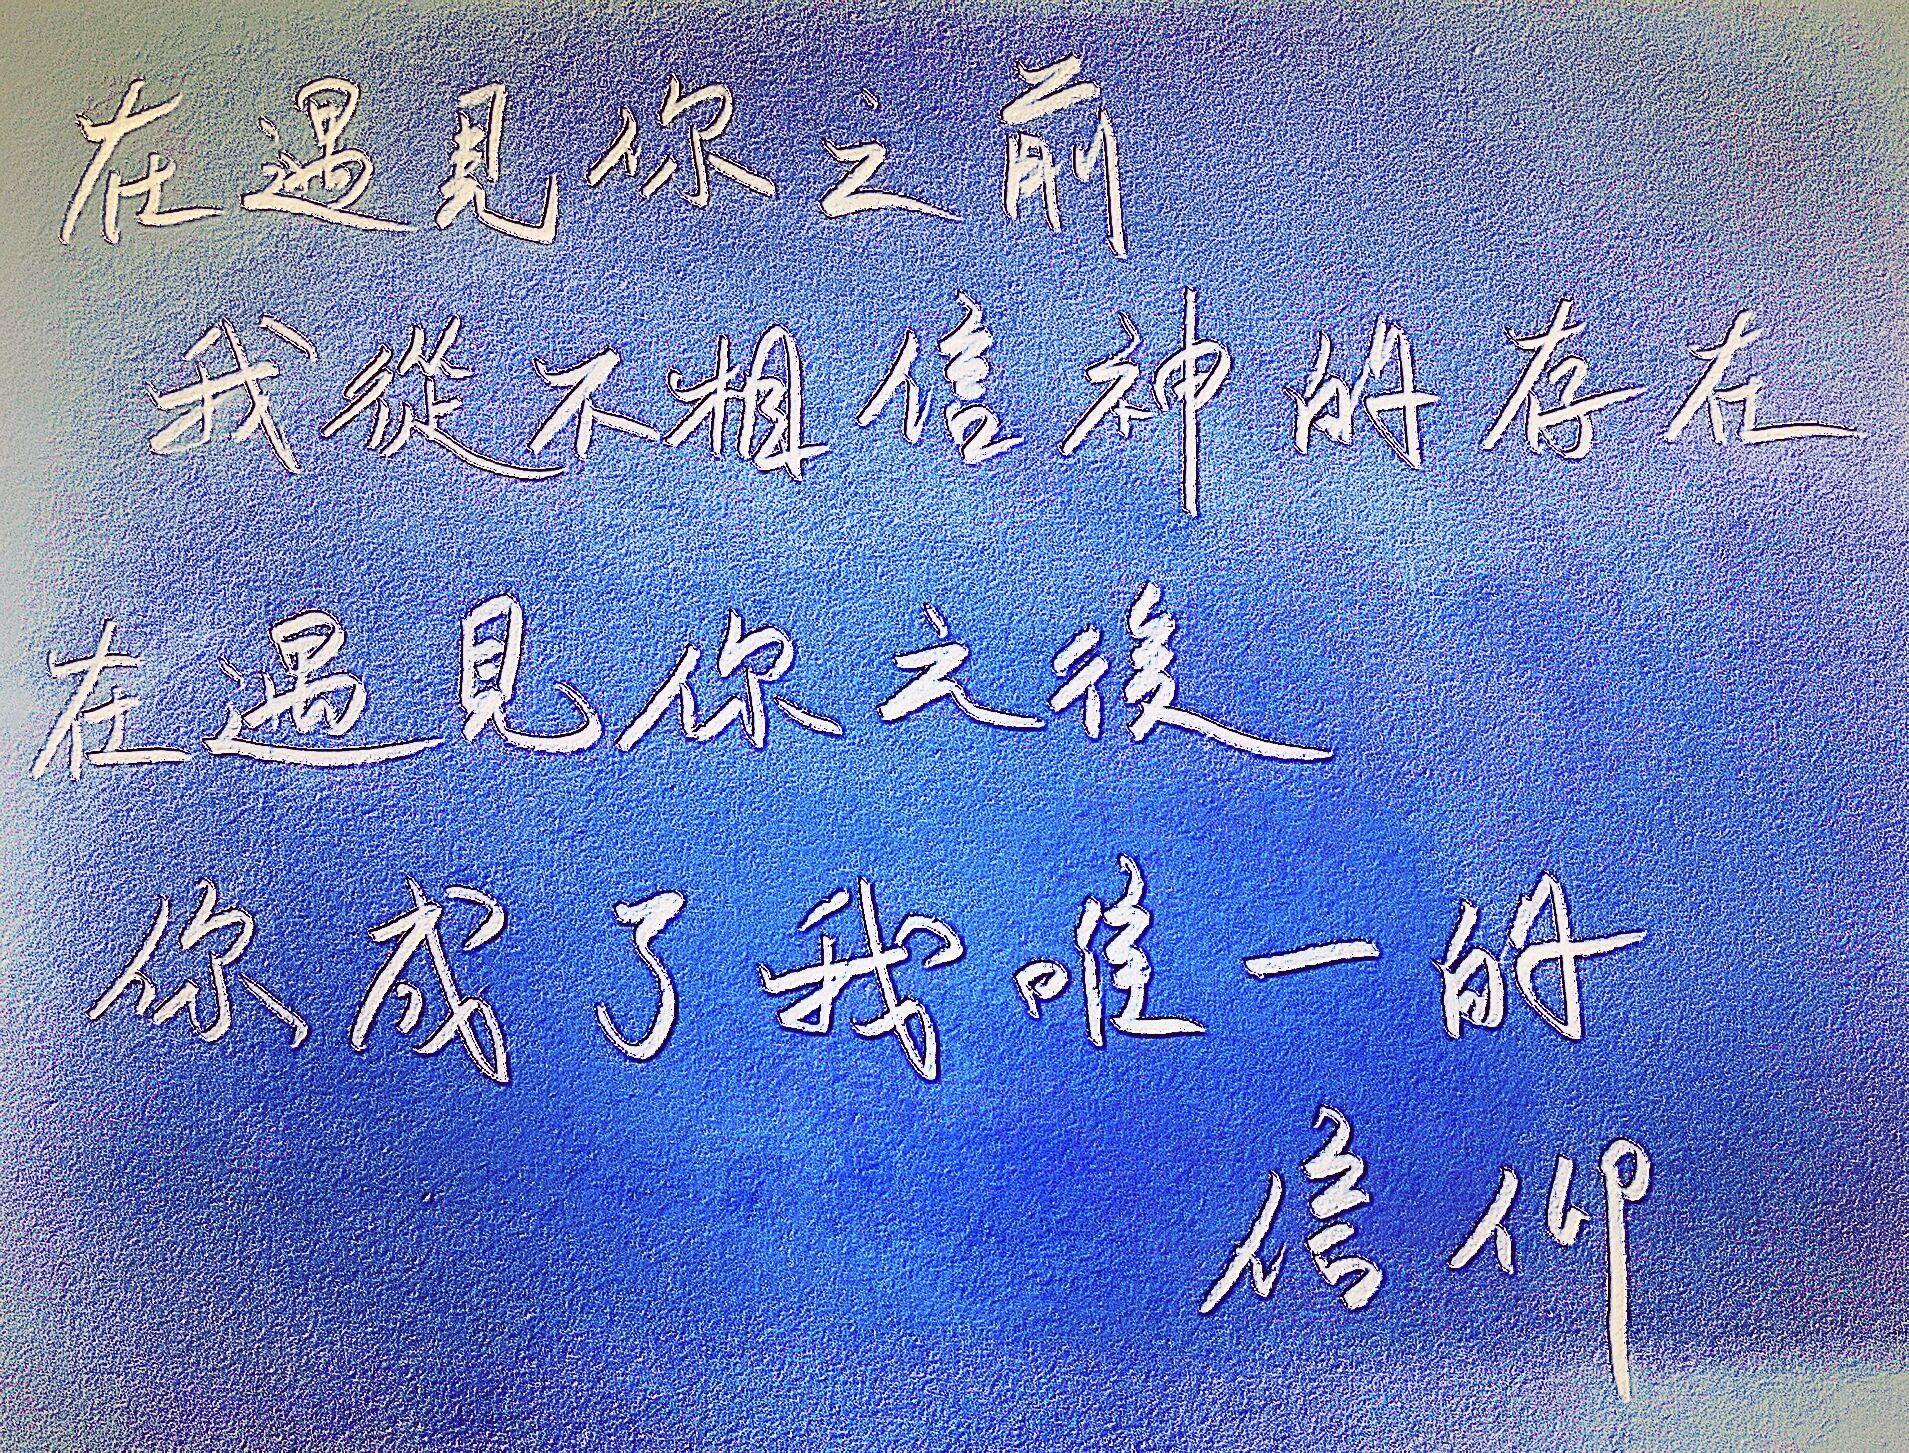 在遇見你之前
我從不相信神的存在
在遇見你之後
你成了我唯一的
信仰